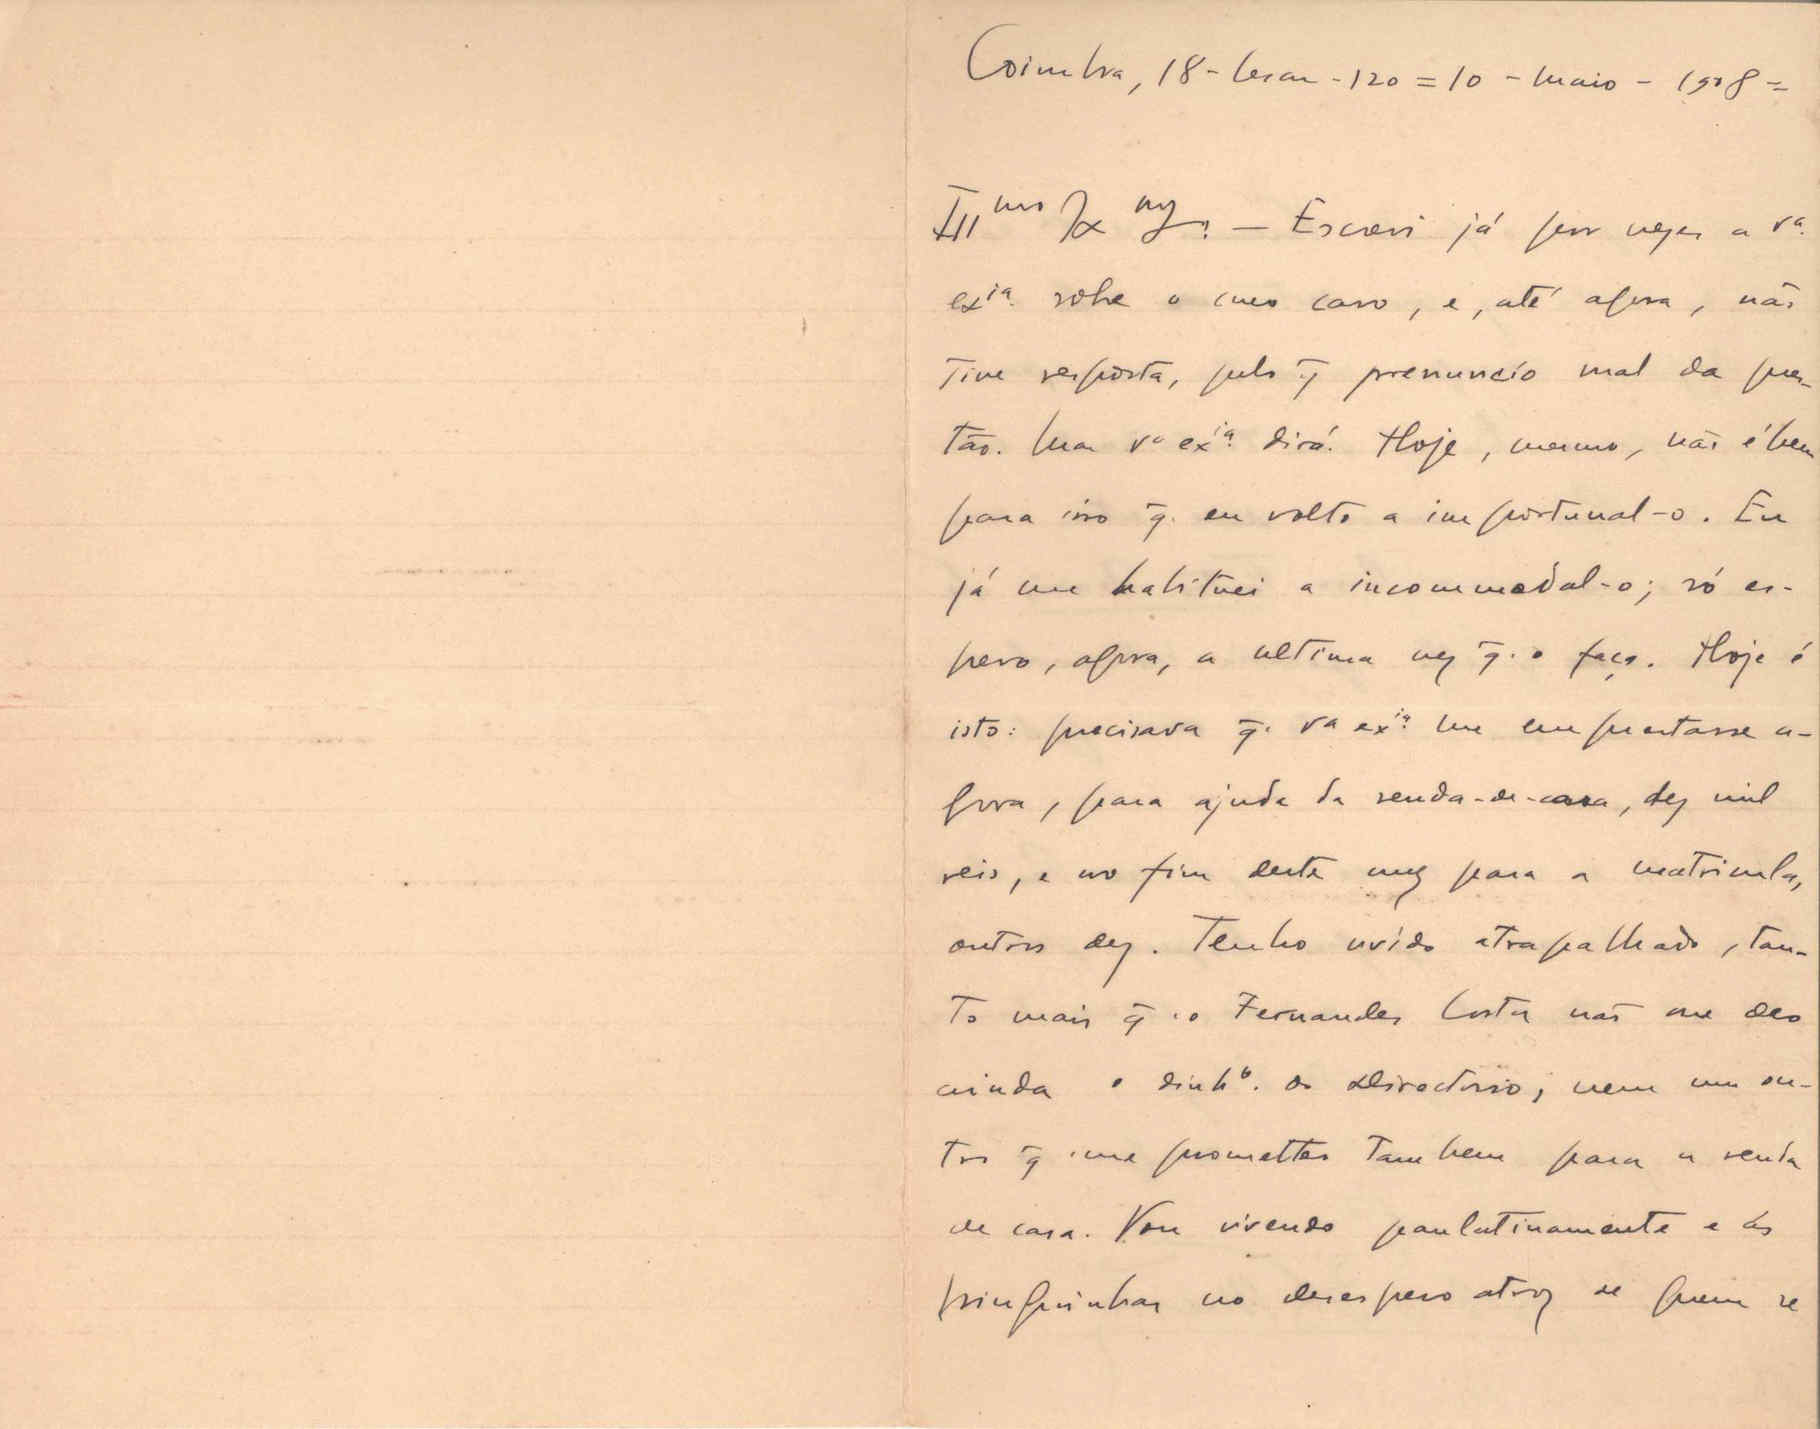 Coimbra, 18 - Cesar - 120 = 10 - Maio - 1908 =
Ill.mo Ex.mo — Escrevi já por vezes a v.a
ex.ia sobre o meo caso, e, até agora, não
tive resposta, pelo q̄ prenuncio mal da ques-
tão. Mas v.a ex.ia dirá. Hoje, mesmo, não é bem
para isso q̄. eu volto a importunal-o. Eu
já me habituei a incommodal-o; só es-
pero, agora, a ultima vez q̄. o faço. Hoje é
isto: precisava q̄. v.a ex.ia me emprestasse a-
gora, para ajuda da renda-de-casa, dez mil
reis, e no fim deste mez para a matricula,
outros dez. Tenho vivido atrapalhado, tan-
to mais q̄. o Fernandes Costa não me deo
ainda o dinh.o do Directorio; nem um ou-
tro q̄ me prometteo tambem para a renda
de casa. Vou vivendo paulatinamente e ás
pinguinhas no desespero atroz de quem se